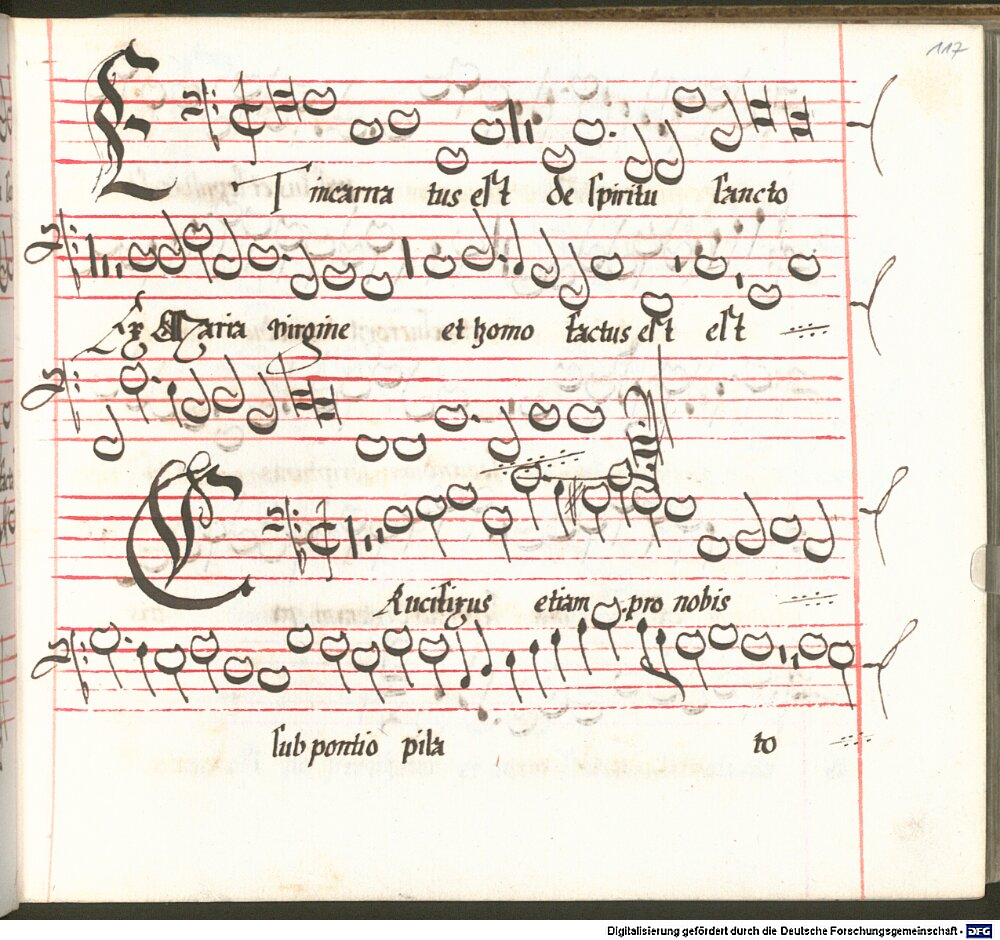 117
ET incarna tus est de spiritu sancto
Ex Maria virgine et homo factus est est
Crucifixus etiam pro nobis
sub pontio pila to
Digitalisierung gefördert durch die Deutsche Forschungsgemeinschaft - DFG